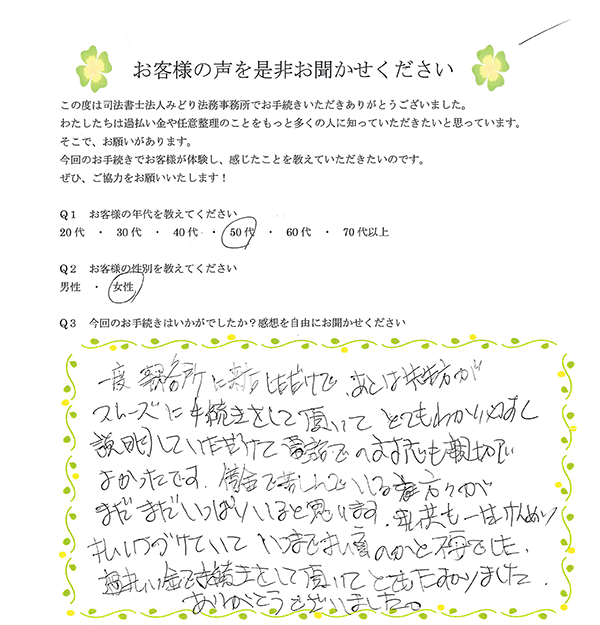 お客様の声を是非お聞かせください
この度は司法書士法人みどり法務事務所でお手続きいただきありがとうございました。
わたしたちは過払い金や任意整理のことをもっと多くの人に知っていただきたいと思っています。
そこで、お願いがあります。
今回のお手続きでお客様が体験し、感じたことを教えていただきたいのです。
ぜひ、ご協力をお願いいたします！
Q１ お客様の年代を教えてください
20代 ・ 30代 ・ 40代 ・ 50代 ・ 60代 ・ 70代以上
Q２ お客様の性別を教えてください
男性 ・ 女性
Q３ 今回のお手続きはいかがでしたか？感想を自由にお聞かせください
一度 事務所に だけで、あとは が
スムーズに手続きをして頂いて とてもわかりやすく
説明していただけて 電話での も親切で
よかったです。借金で苦しんでいる方々が
まだまだいっぱいいると思います。私共も一生けんめい
払いつづけていて いつまで払うのかと不安でした。
過払い金で手続きをして頂いて とてもたすかりました。
ありがとうございました。